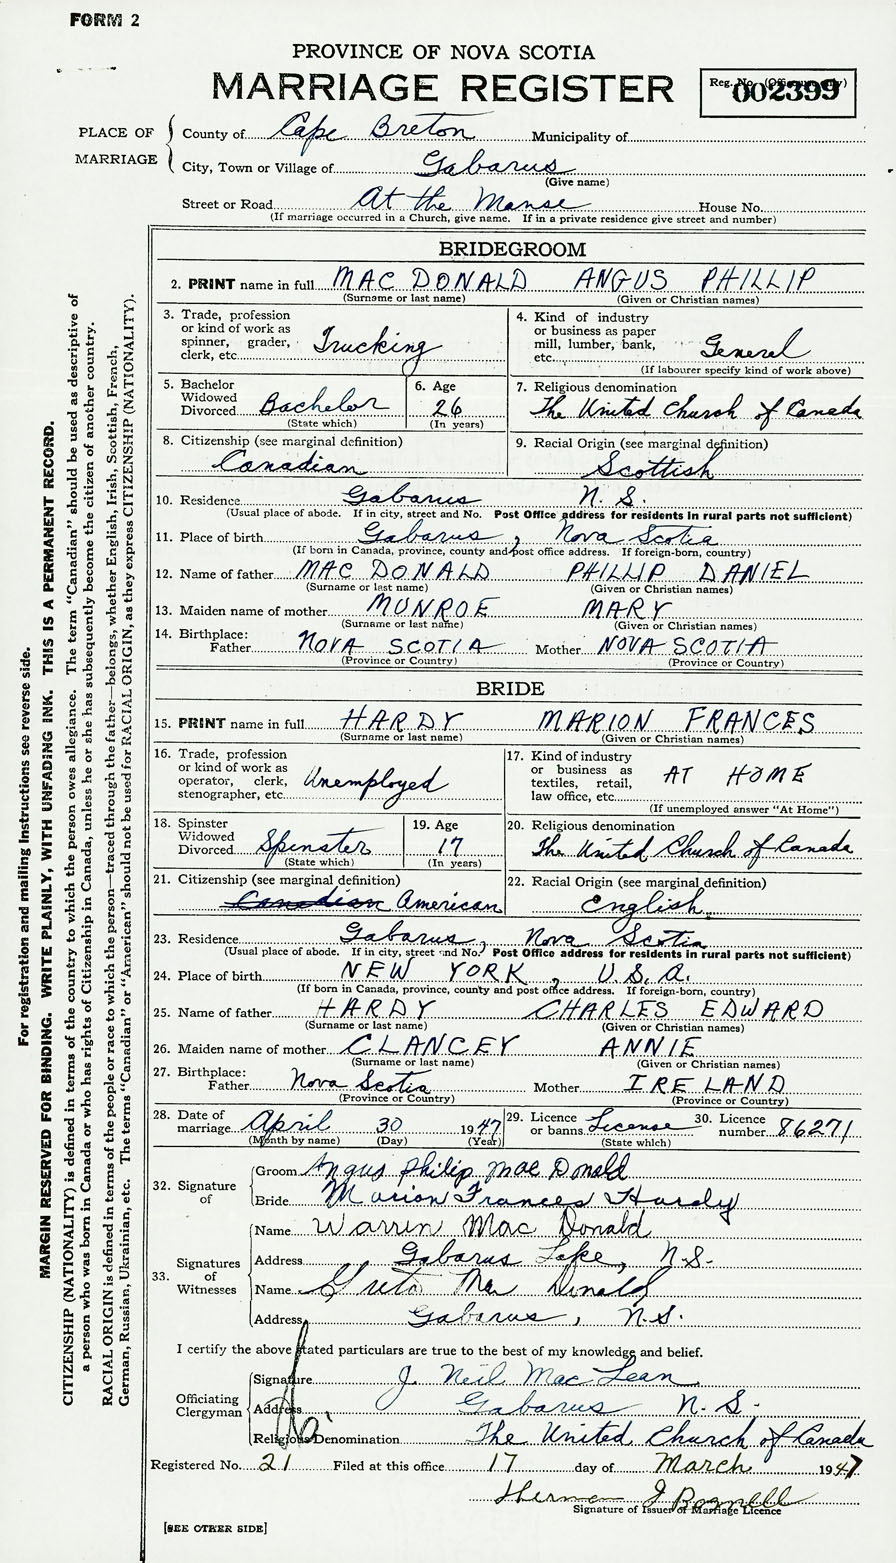 FORM 2
PROVINCE OF NOVA SCOTIA
MARRIAGE REGISTER
Reg. No. (Office use only)
002399
PLACE OF MARRIAGE
County of Cape Breton Municipality of
City, Town or Village of Gabarus
(Give name)
Street or Road At the Manse House No.
(If marriage occurred in a Church, give name. If in a private residence give street and number)
BRIDEGROOM
2. PRINT name in full MAC DONALD ANGUS PHILLIP
(Surname or last name) (Given or Christian names)
3. Trade, profession or kind of work as spinner, grader, clerk, etc. Trucking
4. Kind of industry or business as paper mill, lumber, bank, etc. General
(If labourer specify kind of work above)
5. Bachelor Widowed Divorced Bachelor
(State which)
6. Age 26
(In years)
7. Religious denomination
The United Church of Canada
8. Citizenship (see marginal definition)
Canadian
9. Racial Origin (see marginal definition)
Scottish
10. Residence Gabarus N. S.
(Usual place of abode. If in city, street and No. Post Office address for residents in rural parts not sufficient)
11. Place of birth Gabarus, Nova Scotia
(If born in Canada, province, county and post office address. If foreign-born, country)
12. Name of father MAC DONALD PHILLIP DANIEL
(Surname or last name) (Given or Christian names)
13. Maiden name of mother MUNROE MARY
(Surname or last name) (Given or Christian names)
14. Birthplace: Father NOVA SCOTIA Mother NOVA SCOTIA
(Province or Country) (Province or Country)
BRIDE
15. PRINT name in full HARDY MARION FRANCES
(Surname or last name) (Given or Christian names)
16. Trade, profession or kind of work as operator, clerk, stenographer, etc. Unemployed
17. Kind of industry or business as textiles, retail, law office, etc. AT HOME
(If unemployed answer "At Home")
18. Spinster Widowed Divorced Spinster
(State which)
19. Age 17
(In years)
20. Religious denomination
The United Church of Canada
21. Citizenship (see marginal definition)
Canadian American
22. Racial Origin (see marginal definition)
English
23. Residence Gabarus, Nova Scotia
(Usual place of abode. If in city, street and No. Post Office address for residents in rural parts not sufficient)
24. Place of birth NEW YORK, U.S.A.
(If born in Canada, province, county and post office address. If foreign-born, country)
25. Name of father HARDY CHARLES EDWARD
(Surname or last name) (Given or Christian names)
26. Maiden name of mother CLANCEY ANNIE
(Surname or last name) (Given or Christian names)
27. Birthplace: Father Nova Scotia Mother IRELAND
(Province or Country) (Province or Country)
28. Date of marriage April 30 1947
(Month by name) (Day) (Year)
29. Licence or banns License
(State which)
30. Licence number 86271
32. Signature of
Groom Angus Philip Mac Donald
Bride Marion Frances Hardy
33. Signatures of Witnesses
Name Warrin Mac Donald
Address Gabarus Lake, N.S.
Name Greta Mac Donald
Address Gabarus, N.S.
I certify the above stated particulars are true to the best of my knowledge and belief.
Officiating Clergyman
Signature J. Neil Mac Lean
Address Gabarus N. S.
Religious Denomination The United Church of Canada
Registered No. 21 Filed at this office 17 day of March 1947
Signature of Issuer of Marriage Licence
[SEE OTHER SIDE]
For registration and mailing instructions see reverse side.
MARGIN RESERVED FOR BINDING. WRITE PLAINLY, WITH UNFADING INK. THIS IS A PERMANENT RECORD.
CITIZENSHIP (NATIONALITY) is defined in terms of the country to which the person owes allegiance. The term "Canadian" should be used as descriptive of
a person who was born in Canada or who has rights of Citizenship in Canada, unless he or she has subsequently become the citizen of another country.
RACIAL ORIGIN is defined in terms of the people or race to which the person—traced through the father—belongs, whether English, Irish, Scottish, French,
German, Russian, Ukrainian, etc. The terms "Canadian" or "American" should not be used for RACIAL ORIGIN, as they express CITIZENSHIP (NATIONALITY).